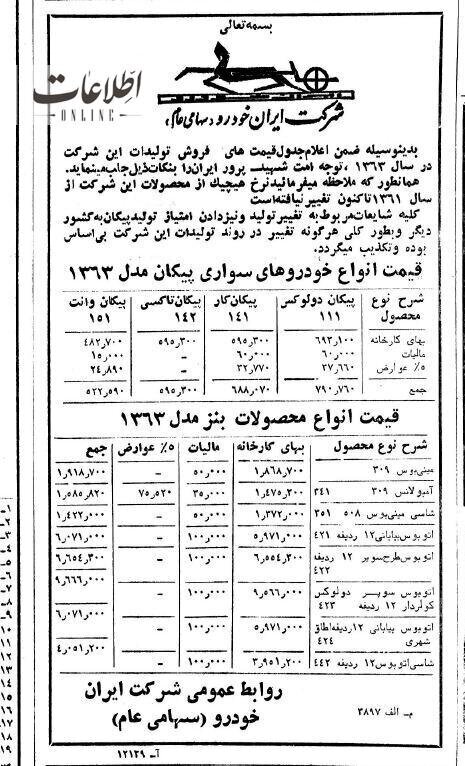 بسمه تعالی
اطلاعات
ONLINE
شرکت ایران خودرو (سهامی عام)
بدینوسیله ضمن اعلام جدول قیمت های فروش تولیدات این شرکت
در سال ۱۳۶۳، توجه امت شهید پرور ایران را بنکات ذیل جلب مینماید.
همانطور که ملاحظه میفرمائید نرخ هیچیک از محصولات این شرکت از
سال ۱۳۶۱ تاکنون تغییر نیافته است
کلیه شایعات مربوط به تغییر تولید و نیز دادن امتیاز تولید پیکان به کشور
دیگر و بطور کلی هرگونه تغییر در روند تولیدات این شرکت بی اساس
بوده و تکذیب میگردد.
قیمت انواع خودروهای سواری پیکان مدل ۱۳۶۳
شرح نوع محصول پیکان دولوکس ۱۱۱ پیکان کار ۱۴۱ پیکان تاکسی ۱۴۲ پیکان وانت ۱۵۱
بهای کارخانه ۶۹۳٫۱۰۰ ۵۹۵٫۳۰۰ ۵۹۵٫۳۰۰ ۴۸۲٫۷۰۰
مالیات ۶۰٫۰۰۰ ۶۰٫۰۰۰ – ۱۵٫۰۰۰
۵٪ عوارض ۳۷٫۶۶۰ ۳۲٫۷۷۰ – ۲۴٫۸۹۰
جمع ۷۹۰٫۷۶۰ ۶۸۸٫۰۷۰ ۵۹۵٫۳۰۰ ۵۲۲٫۵۹۰
قیمت انواع محصولات بنز مدل ۱۳۶۳
شرح نوع محصول بهای کارخانه مالیات ۵٪ عوارض جمع
مینی بوس ۳۰۹ ۱٫۸۶۸٫۷۰۰ ۵۰٫۰۰۰ – ۱٫۹۱۸٫۷۰۰
آمبولانس ۳۰۹ ۳۴۱ ۱٫۴۷۵٫۳۰۰ ۳۵٫۰۰۰ ۷۵٫۵۲۰ ۱٫۵۸۵٫۸۲۰
شاسی مینی بوس ۵۰۸ ۳۵۱ ۱٫۳۷۲٫۰۰۰ ۵۰٫۰۰۰ – ۱٫۴۲۲٫۰۰۰
اتوبوس بیابانی ۱۲ ردیفه ۴۲۱ ۵٫۹۷۱٫۰۰۰ ۱۰۰٫۰۰۰ – ۶٫۰۷۱٫۰۰۰
اتوبوس طرح سوپر ۱۲ ردیفه ۴۲۲ ۶٫۵۵۴٫۳۰۰ ۱۰۰٫۰۰۰ – ۶٫۶۵۴٫۳۰۰
اتوبوس سوپر دولوکس کولردار ۱۲ ردیفه ۴۲۳ ۹٫۵۶۶٫۰۰۰ ۱۰۰٫۰۰۰ – ۹٫۶۶۶٫۰۰۰
اتوبوس بیابانی ۱۲ ردیفه اطاق شهری ۴۲۴ ۵٫۹۷۱٫۰۰۰ ۱۰۰٫۰۰۰ – ۶٫۰۷۱٫۰۰۰
شاسی اتوبوس ۱۲ ردیفه ۴۴۲ ۳٫۹۵۱٫۲۰۰ ۱۰۰٫۰۰۰ – ۴٫۰۵۱٫۲۰۰
روابط عمومی شرکت ایران
خودرو (سهامی عام)
م ـ الف ۳۸۹۷
آـ ۱۲۱۲۹